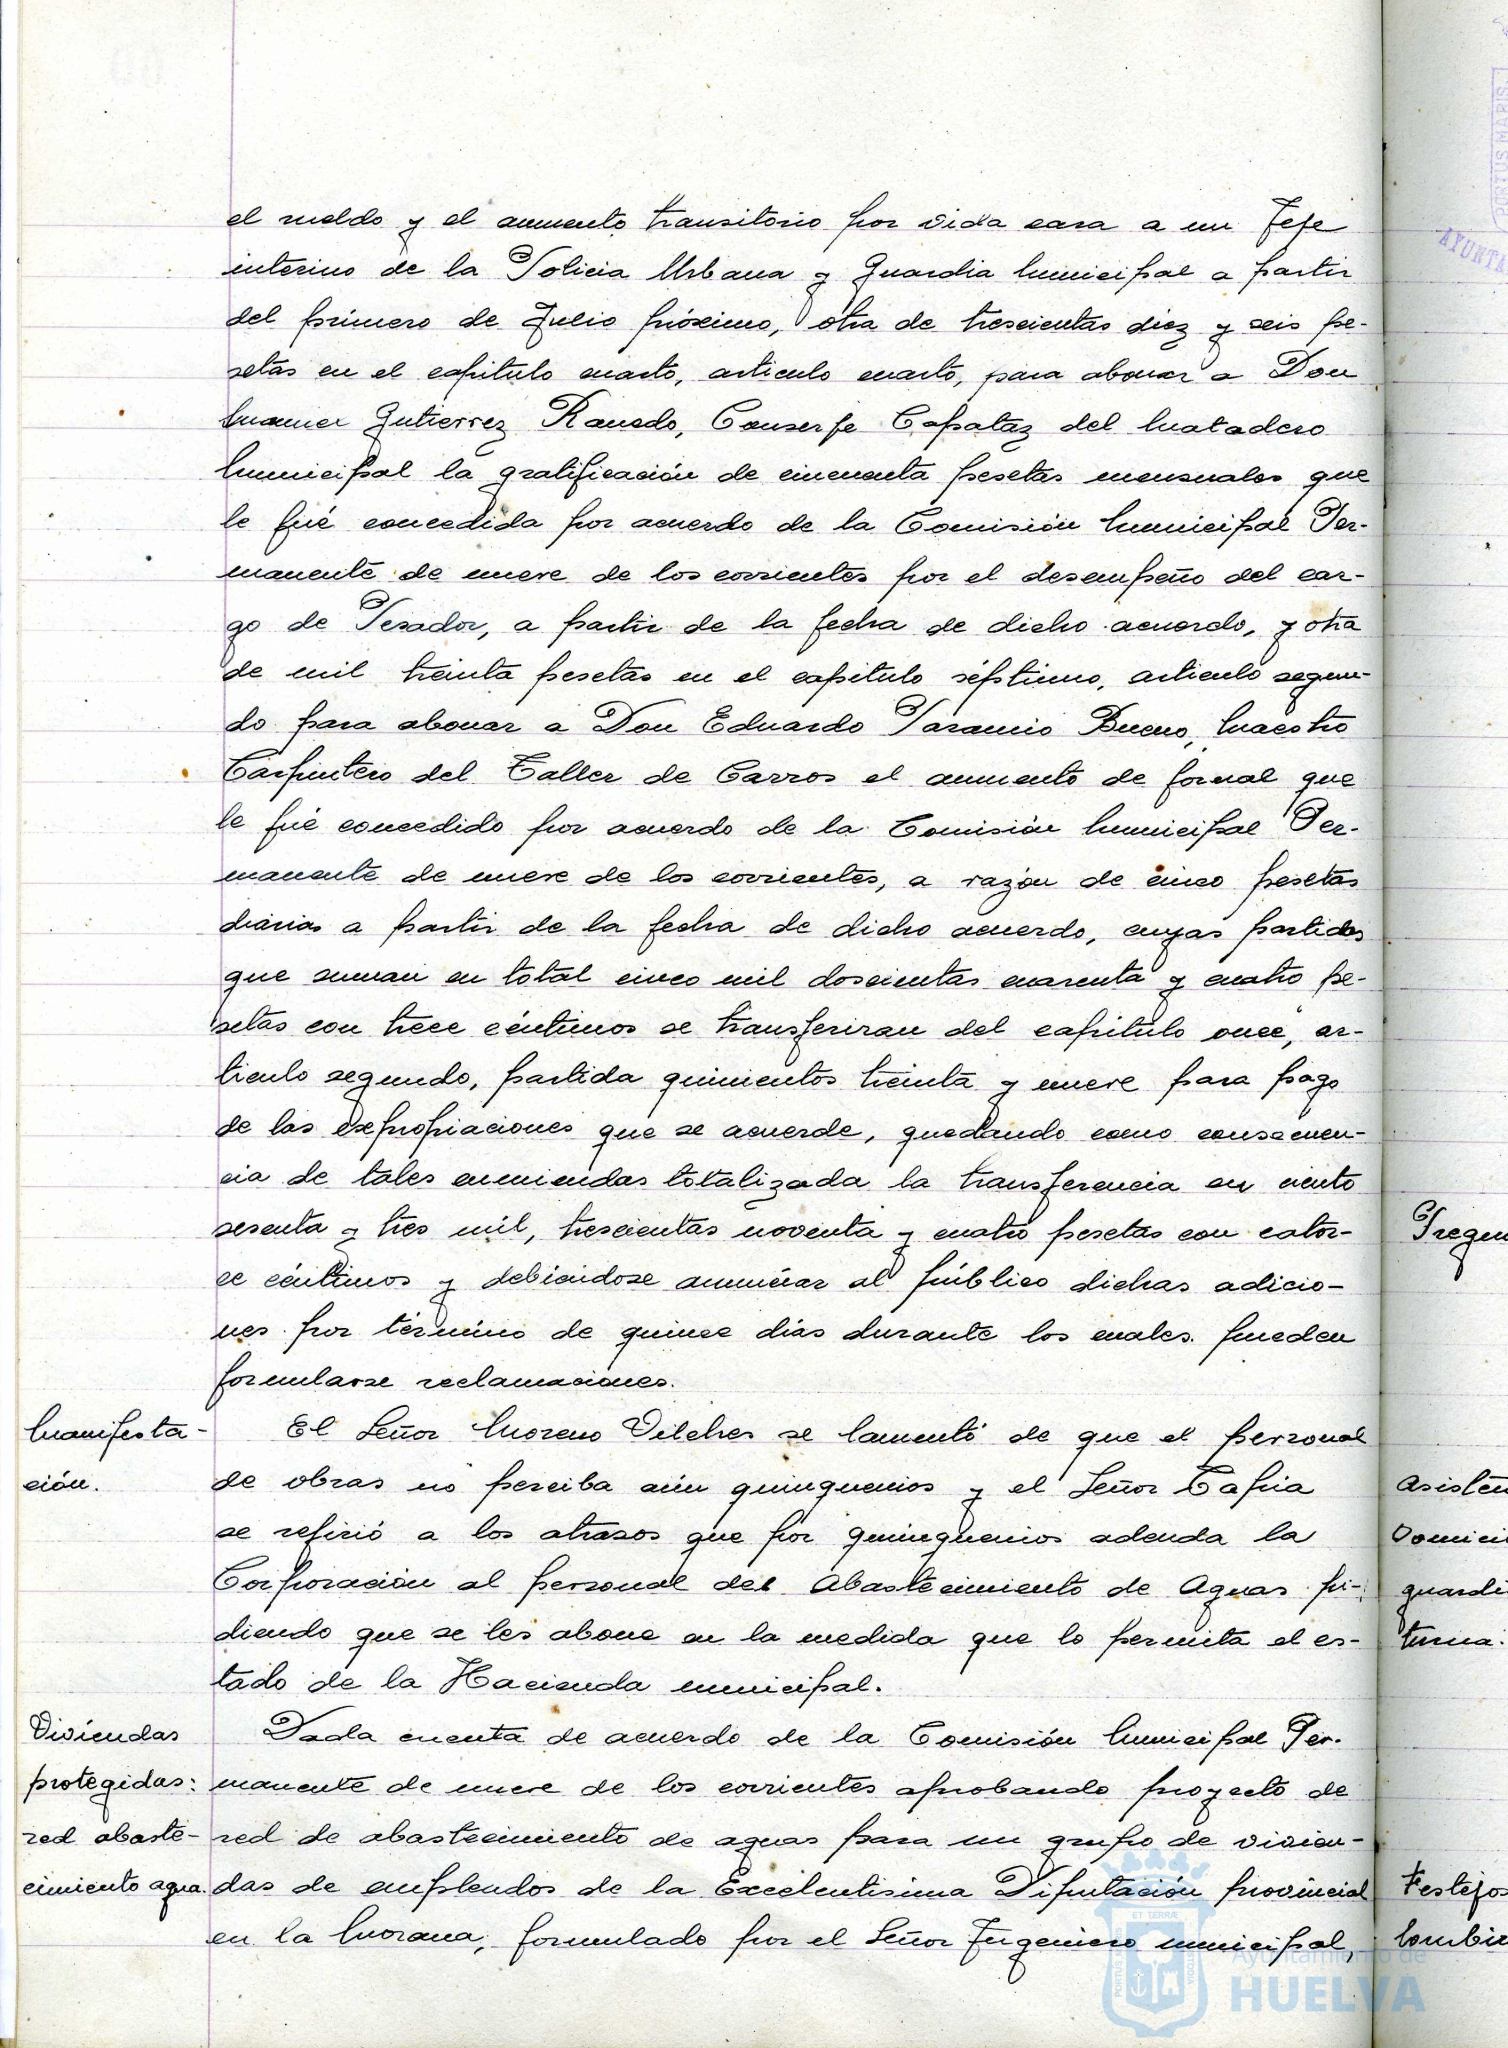 el sueldo y el aumento transitorio por vida cara a un Jefe
interino de la Policia Urbana y Guardia Municipal a partir
del primero de Julio próximo, otra de trescientas diez y seis pe-
setas en el capitulo cuarto, articulo cuarto, para abonar a Don
Manuel Gutierrez Ranedo, Conserje Capataz del Matadero
Municipal la gratificación de cincuenta pesetas mensuales que
le fué concedida por acuerdo de la Comisión Municipal Per-
manente de nueve de los corrientes por el desempeño del car-
go de Pesador, a partir de la fecha de dicho acuerdo, y otra
de mil treinta pesetas en el capitulo séptimo, articulo segun-
do para abonar a Don Eduardo Paramio Bueno, Maestro
Carpintero del Taller de Carros el aumento de jornal que
le fué concedido por acuerdo de la Comisión Municipal Per-
manente de nueve de los corrientes, a razón de cinco pesetas
diarias a partir de la fecha de dicho acuerdo, cuyas partidas
que suman en total cinco mil doscientas cuarenta y cuatro pe-
setas con trece céntimos se transferiran del capitulo once, ar-
ticulo segundo, partida quinientos treinta y nueve para pago
de las expropiaciones que se acuerde, quedando como consecuen-
cia de tales enmiendas totalizada la transferencia en ciento
sesenta y tres mil, trescientas noventa y cuatro pesetas con cator-
ce céntimos y debiéndose anunciar al público dichas adicio-
nes por término de quince días durante los cuales pueden
formularse reclamaciones.
Manifesta-
ción.
El Señor Moreno Vilches se lamentó de que el personal
de obras no perciba aún quinquenios y el Señor Tapia
se refirió a los atrasos que por quinquenios adeuda la
Corporación al personal del Abastecimiento de Aguas pi-
diendo que se les abone en la medida que lo permita el es-
tado de la Hacienda municipal.
Viviendas
protegidas:
red abaste-
cimiento agua.
Dada cuenta de acuerdo de la Comisión Municipal Per-
manente de nueve de los corrientes aprobando proyecto de
red de abastecimiento de aguas para un grupo de vivien-
das de empleados de la Excelentisima Diputación provincial
en la Morana, formulado por el Señor Ingeniero municipal,
Pregun
Asisten
Domici
guardi
turna.
Festejos
Combin
AYUNTA
Ayuntamiento de
HUELVA